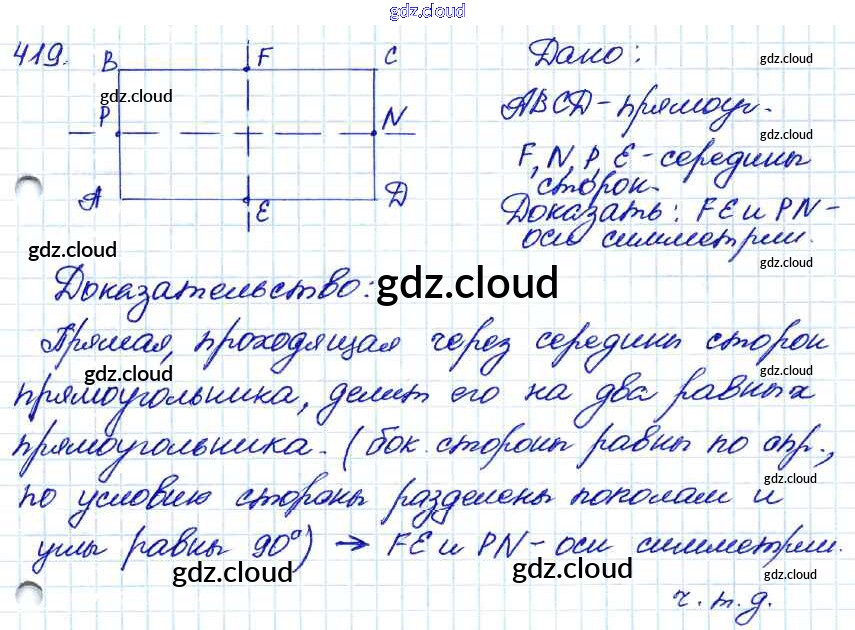 gdz.cloud
419.
B F C
gdz.cloud
P N
A E D
Дано:
gdz.cloud
ABCD - прямоуг.
gdz.cloud
F, N, P, E - середины
сторон.
gdz.cloud
Доказать: FE и PN -
оси симметрии.
gdz.cloud
gdz.cloud
Доказательство:
gdz.cloud
Прямая, проходящая через середины сторон
gdz.cloud
gdz.cloud
прямоугольника, делит его на два равных
прямоугольника. (бок. стороны равны по опр.,
gdz.cloud
по условию стороны разделены пополам и
углы равны 90°) → FE и PN - оси симметрии.
gdz.cloud
gdz.cloud
gdz.cloud
ч.т.д.